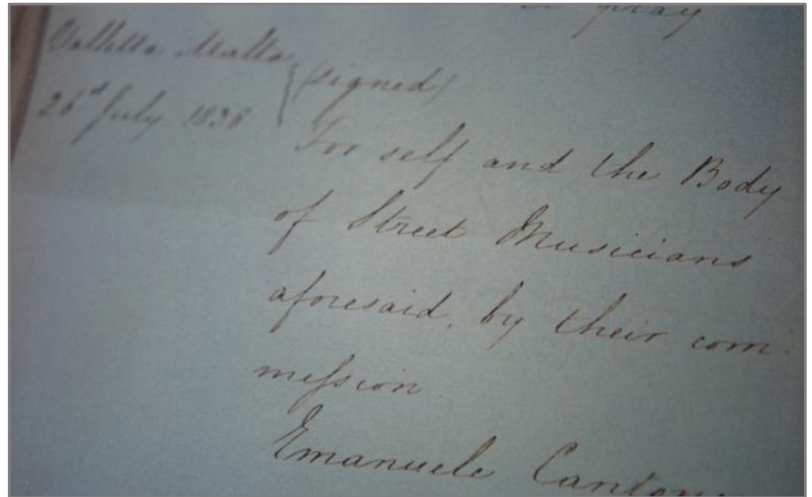 pray
Valletta Malta
(signed)
26th July 1838
For self and the Body
of Street Musicians
aforesaid, by their com:
miſsion.
Emanuele Canton